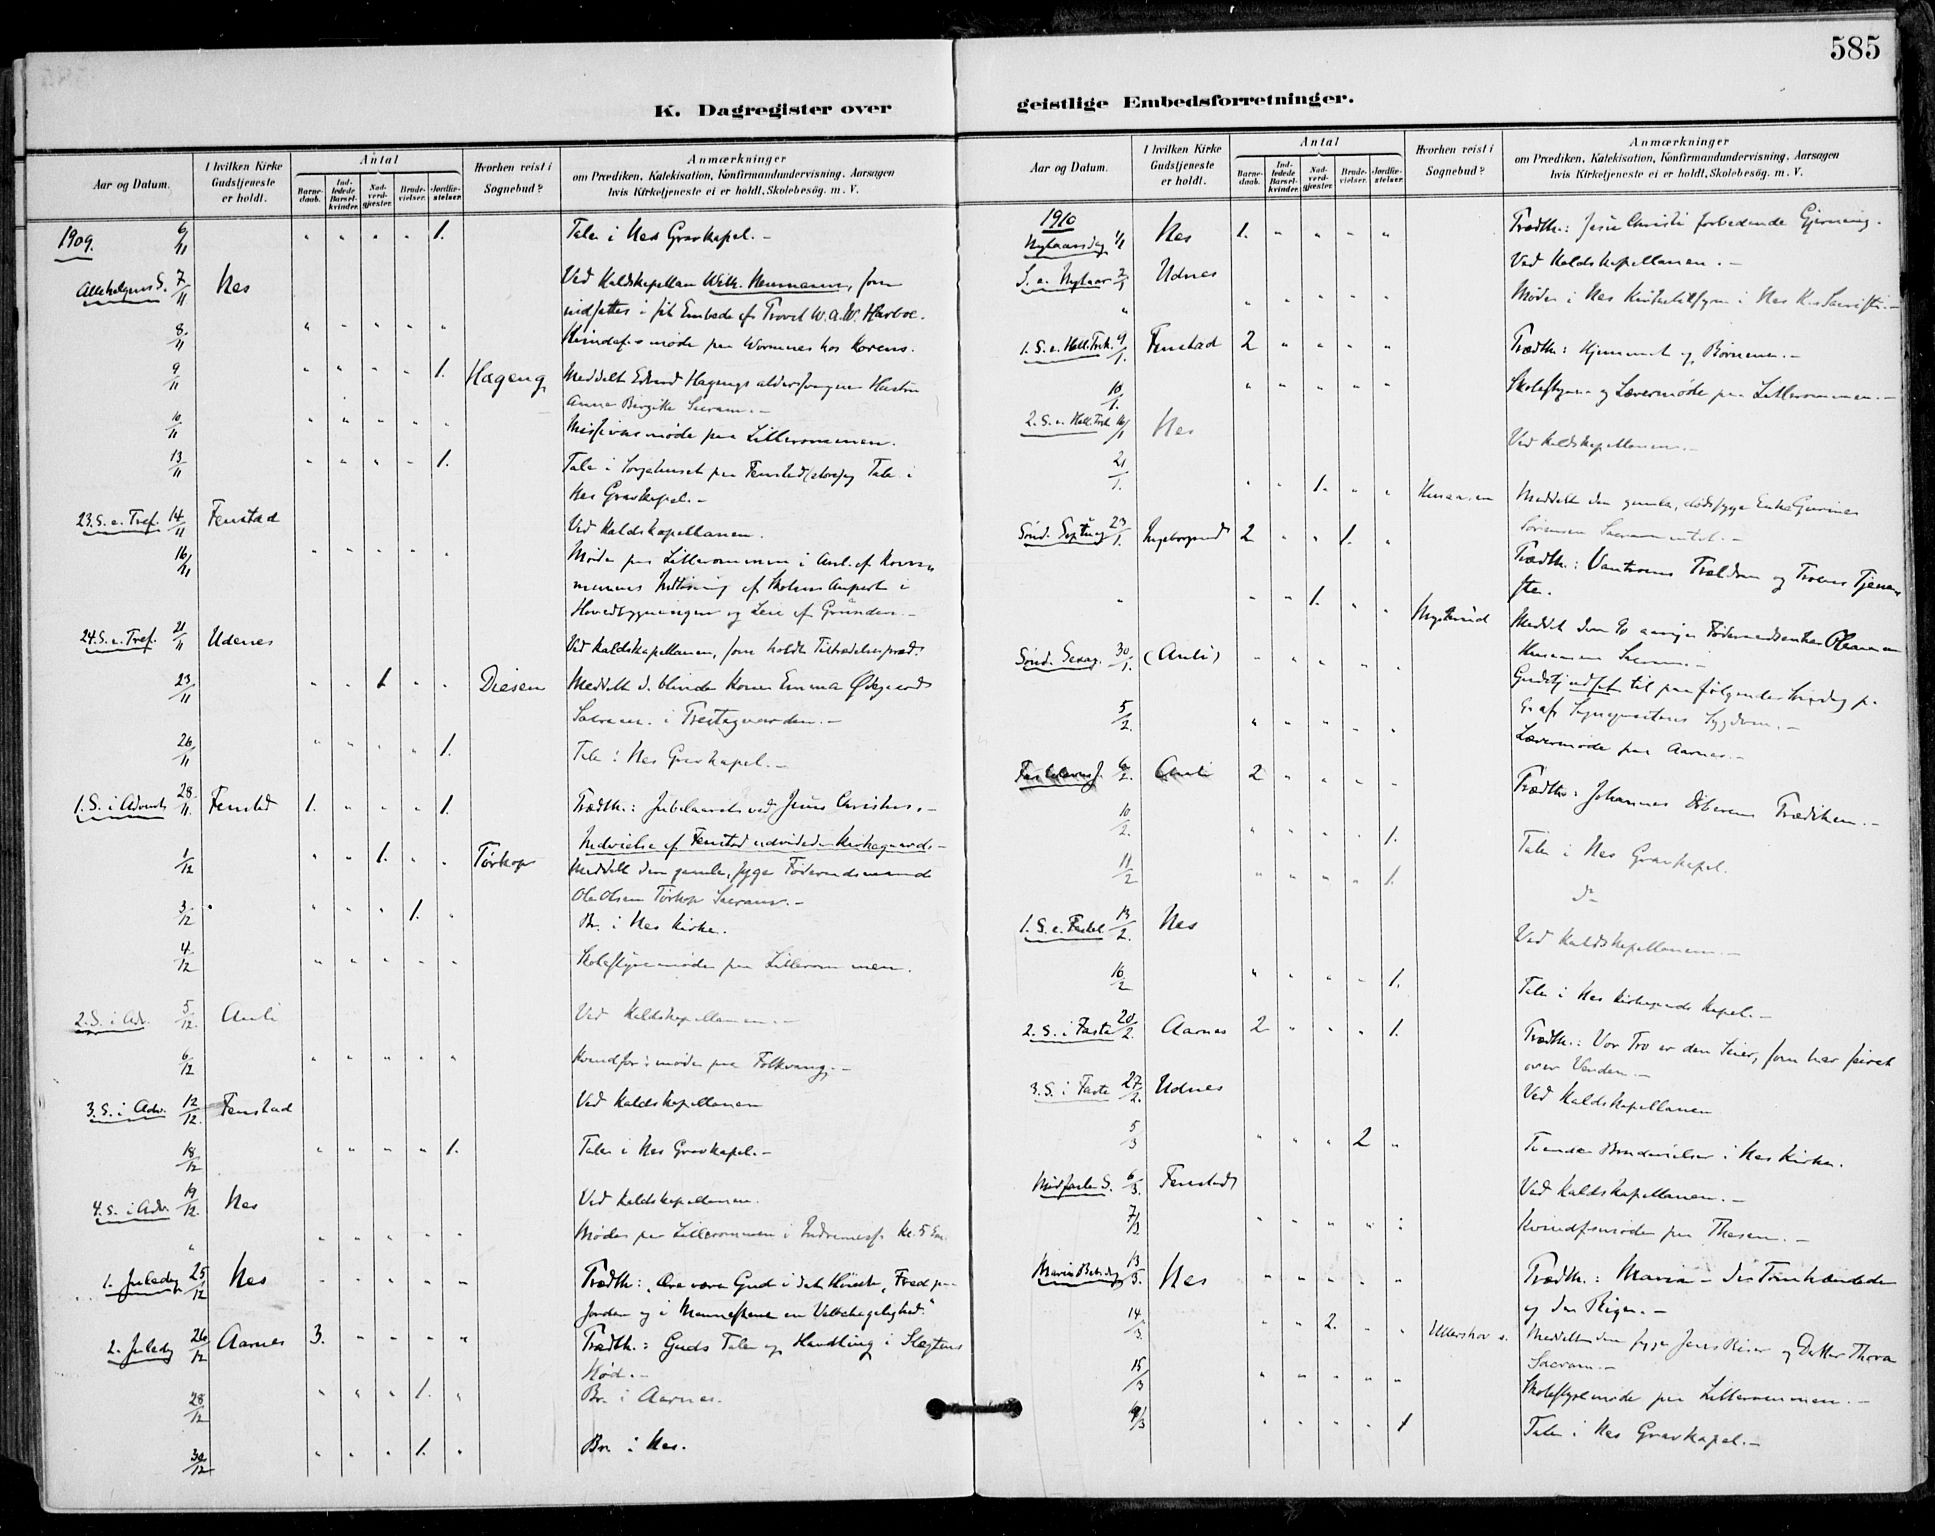 585
K. Dagregister over
geistlige Embedsforretninger.
Aar og Datum. I hvilken Kirke Gudstjeneste er holdt. Antal Barnedaab. Indledede Barselkvinder. Nadverdgjæster. Brudevielser. Jordfæstelser. Hvorhen reist i Sognebud? Anmærkninger om Prædiken, Katekisation, Konfirmandundervisning, Aarsagen hvis Kirketjeneste ei er holdt, Skolebesøg. m. V.
1909. 6/11 " " " " 1. Tale i Nes Gravkapel. -
Allehelgens S. 7/11 Nes Ved Kaldskapellan Wilh. Neumann, som
indsættes i sit Embede af Provst W. A. W. Harboe.
8/11 " " " " " møde paa Wormnes hos
9/11 " " " " 1. Hageng Meddelt Hagengs Hustru
Anna Birgitte Sacram. -
10/11 " " " " " møde paa Lillerommen.
13/11 " " " " 1. Tale i Sørgehuset paa Fenstad og Tale i
Nes Gravkapel. -
23. S. e. Tref. 14/11 Fenstad Ved Kaldskapellanen.
16/11 " " " " " Møde paa Lillerommen i Anl. af
af Skolens i
Hovedbygningen og Leie af Grunden. -
24. S. e. Tref. 21/11 Udenes Ved Kaldskapellanen, som holdt Tiltrædelsespræd.
23/11 " " 1 " " Diesen Meddelt d. blinde Kone Emma Ødegaard
Sacram. i -
26/11 " " " " 1. Tale i Nes Gravkapel. -
1. S. i Advent 28/11. Fenstad 1. " " " 1. Prædtk.: Jubelaaret ved Jesus Christus. -
Indvielse af Fenstad udvidede Kirkegaard -
1/12 " " 1. " " Tørkop Meddelt den gamle, syge Føderaadsmand
Ole Olsen Tørkop Sacram. -
3/12 " " " 1. " Br. i Nes Kirke.
4/12 " " " " " Skolestyremøde paa Lillerommen.
2. S. i Adv. 5/12. Auli Ved Kaldskapellanen. -
6/12 " " " " " møde paa Folkvang. -
3. S. i Adv. 12/12. Fenstad Ved Kaldskapellanen
18/12 " " " " 1. Tale i Nes Gravkapel. -
4. S. i Adv. 19/12. Nes Ved Kaldskapellanen.
" " " " " " Møde paa Lillerommen i Kl. 5 Em.
1. Juledag 25/12 Nes " " " " " Prædtk.: "Ære være Gud i det Høieste, Fred paa
Jorden og i Menneskene en Velbehagelighed."
2. Juledag 26/12 Aarnes 3. " " " " Prædtk.: Guds Tale og Handling i Slægtens
Nød. -
28/12 " " " 1. " Br. i Aarnes.
30/12 " " " 1. " Br. i Nes.
Aar og Datum. I hvilken Kirke Gudstjeneste er holdt. Antal Barnedaab. Indledede Barselkvinder. Nadverdgjæster. Brudevielser. Jordfæstelser. Hvorhen reist i Sognebud? Anmærkninger om Prædiken, Katekisation, Konfirmandundervisning, Aarsagen hvis Kirketjeneste ei er holdt, Skolebesøg. m. V.
1910
Nytaarsdag 1/1 Nes 1. " " " " Prædtk.: Jesu Christi forbedende Gjerning.
S. e. Nytaar 2/1 Udnes Ved Kaldskapellanen. -
" " " " " " Møde i Nes Kirketilsyn i Nes K.s Sacristi. -
1. S. e. Hell. Trek. 9/1. Fenstad 2 " " " " Prædtk.: Hjemmet og Børnene. -
10/1. " " " " " Skolestyre og Læremøde paa Lillerommen. -
2. S. e. Hell. Trek 16/1 Nes Ved Kaldskapellanen. -
21/1. " " 1. " " Husaasen Meddelt den gamle, dødssyge Enke
Sørensen Sacramentet. -
Sønd. Septuag. 23/1. Ingeborgrud 2 " " 1. " Prædtk.: Vantroens Trældom og Troens Tjene-
ste.
" " " 1. " " Myrerud Meddelt den 90 aarige
Sacram. -
Sønd. Sexag. 30/1. (Auli) " " " " " Gudstj. udsat til paa følgende Søndag p.
Gr. af Sognepræstens Sygdom. -
5/2. " " " " " Læremøde paa Aarnes. -
Fastelavns S. 6/2. Auli 2 " " " " Prædtk.: Johannes Døberens Prædiken. -
10/2. " " " " 1. Tale i Nes Gravkapel.
11/2 " " " " 1. do
1. S. e. Fastel. 13/2. Nes Ved Kaldskapellanen. -
16/2 " " " " 1. Tale i Nes Kirkegaards Kapel. -
2. S. i Faste 20/2. Aarnes 2 " " " 1. Prædtk.: Vor Tro er den Seier, som har seiret
over Verden. -
3. S. i Faste 27/2. Udnes Ved Kaldskapellanen
5/3 " " " 2 " Tvende Brudevielser i Nes Kirke.
Midfaste S. 6/3. Fenstad Ved Kaldskapellanen. -
7/3 " " " " " Kvindfsmøde paa Thesen. -
Mariæ Beb.dag 13/3. Nes " " " " " Prædtk.: Maria - den Tomhændede
og den Rige. -
14/3 " " 2. " " Ullershov s. Meddelt den syge og Datter Thora
Sacram. -
15/3 " " " " " Skolestyremøde paa Lillerommen. -
19/3 " " " " 1 Tale i Nes Gravkapel. -